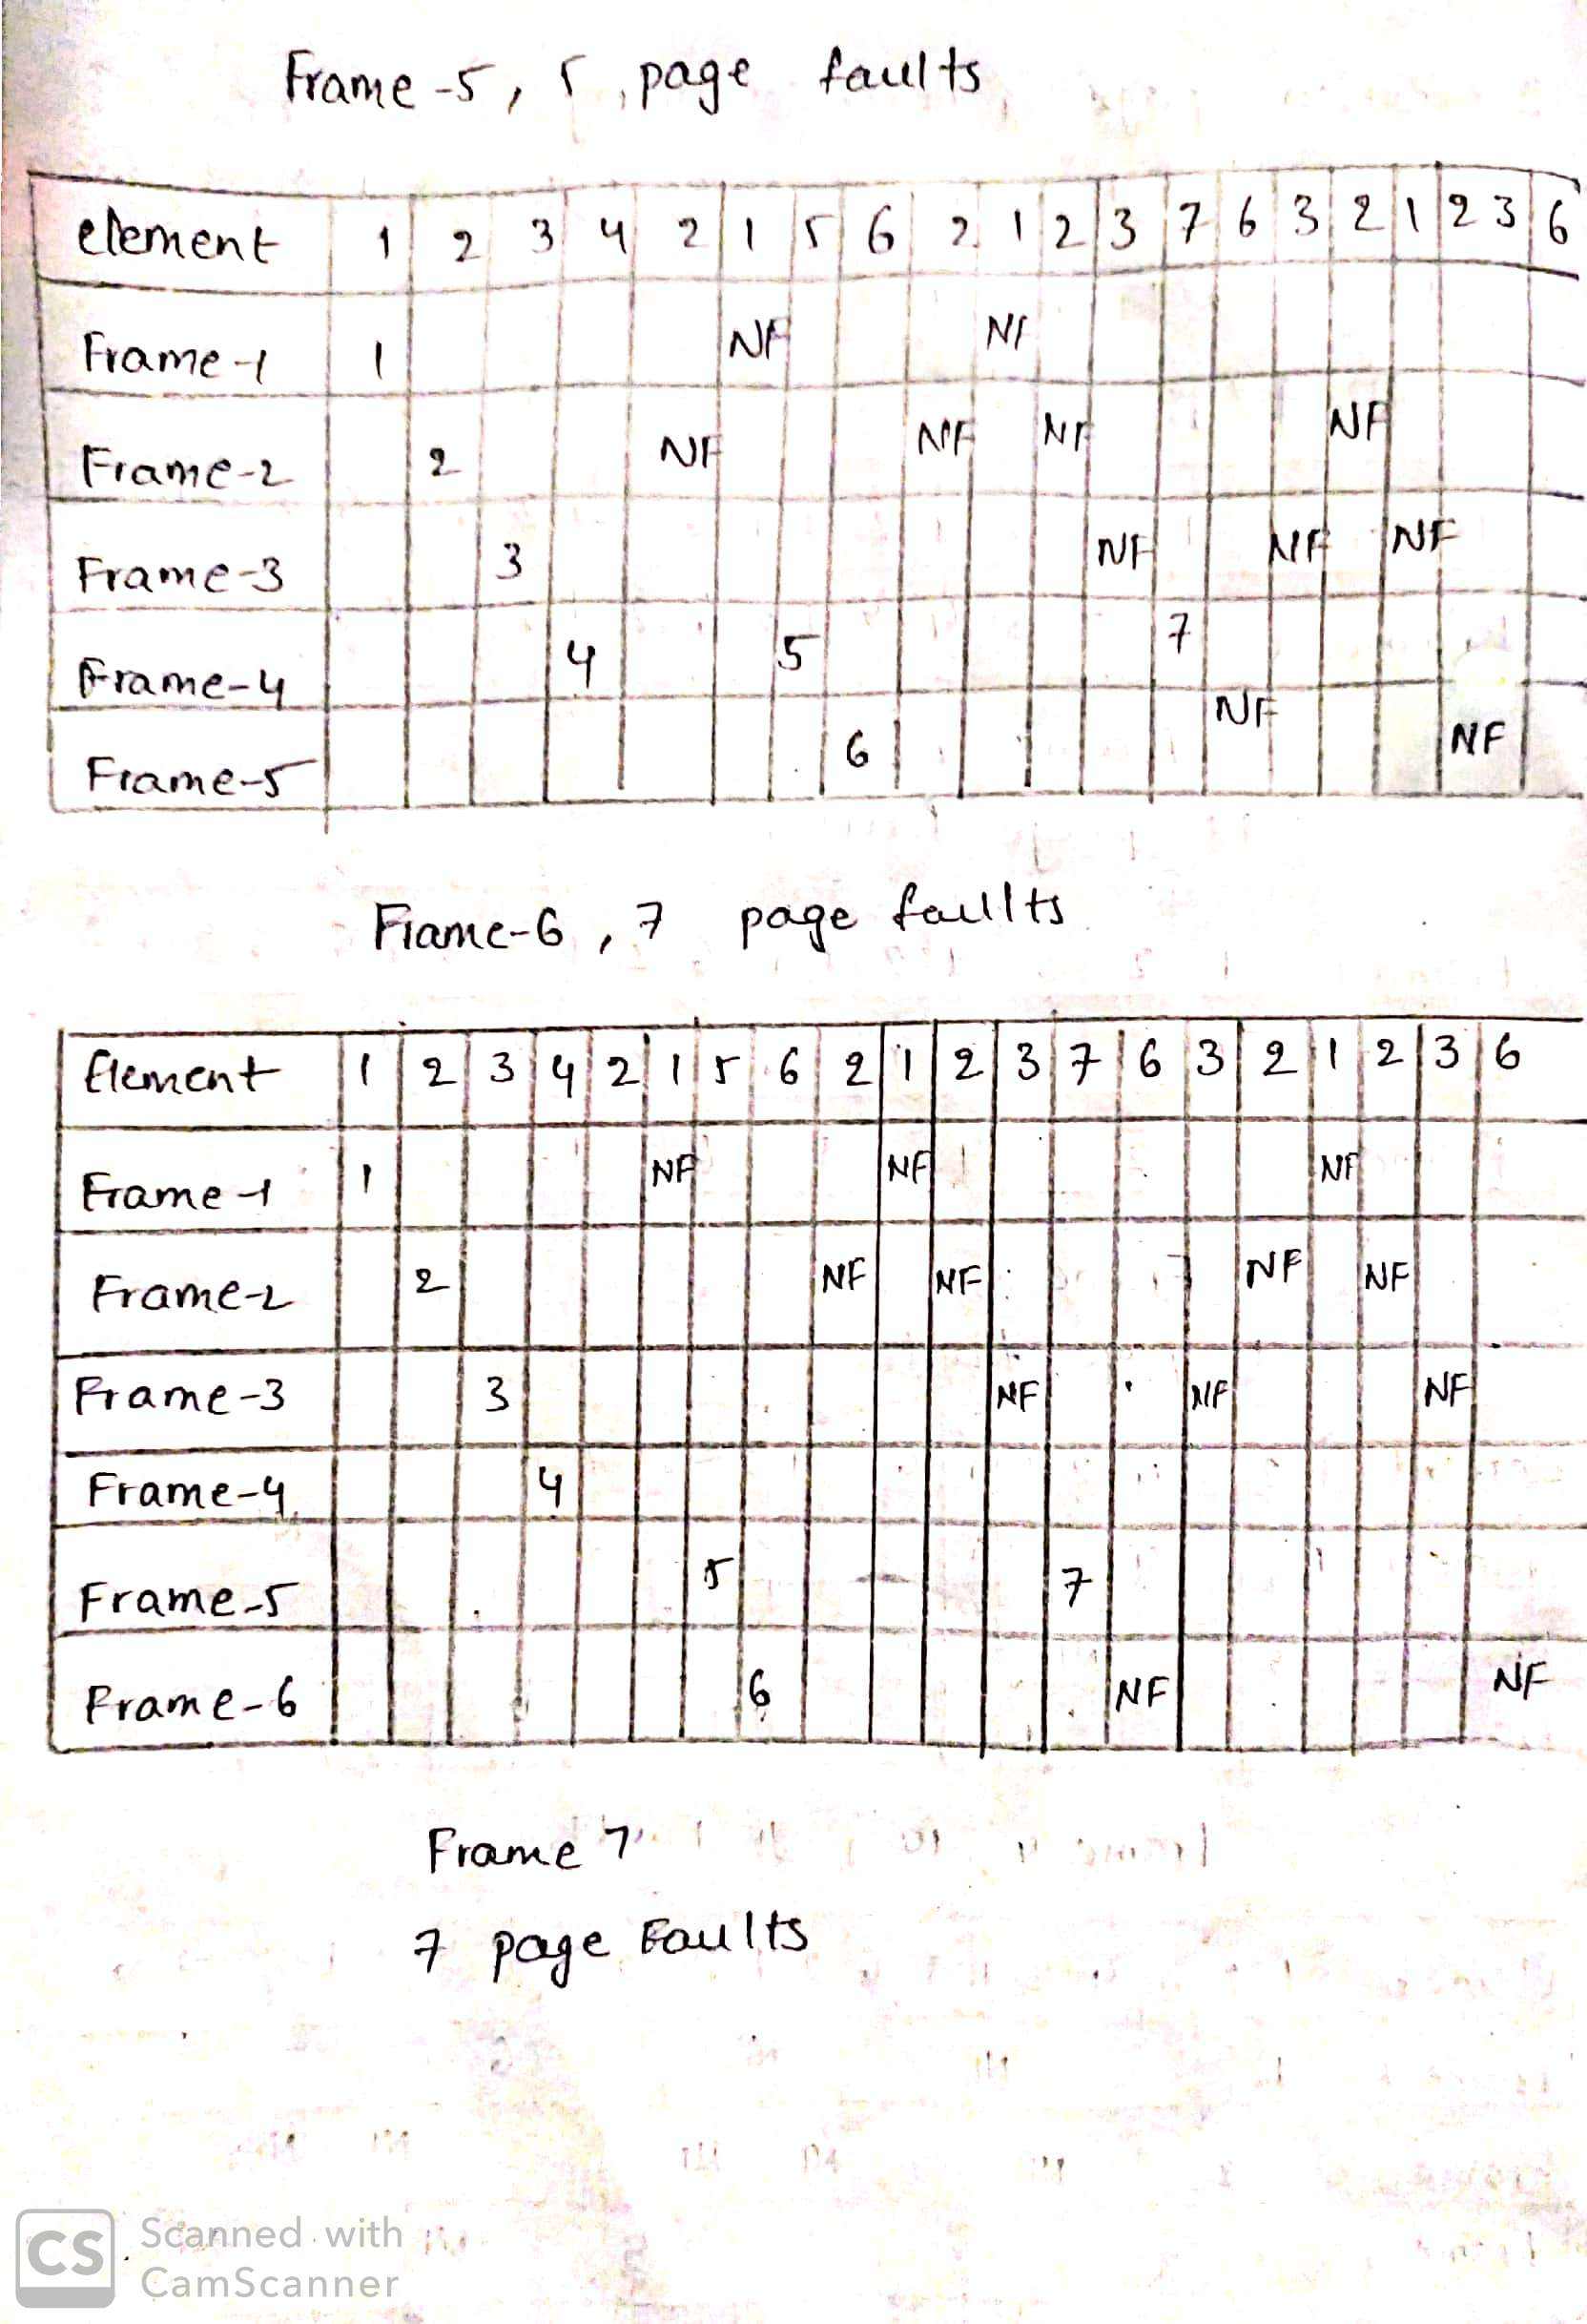 Frame-5, 5 page faults
element 1 2 3 4 2 1 5 6 2 1 2 3 7 6 3 2 1 2 3 6
Frame-1 1 NF NF
Frame-2 2 NF NF NF NF
Frame-3 3 NF NF NF
Frame-4 4 5 7
Frame-5 6 NF NF
Frame-6, 7 page faullts
Element 1 2 3 4 2 1 5 6 2 1 2 3 7 6 3 2 1 2 3 6
Frame-1 1 NF NF NF
Frame-2 2 NF NF NF NF
Frame-3 3 NF NF NF
Frame-4 4
Frame-5 5 7
Frame-6 6 NF NF
Frame 7
7 page Faults
CS Scanned with
CamScanner